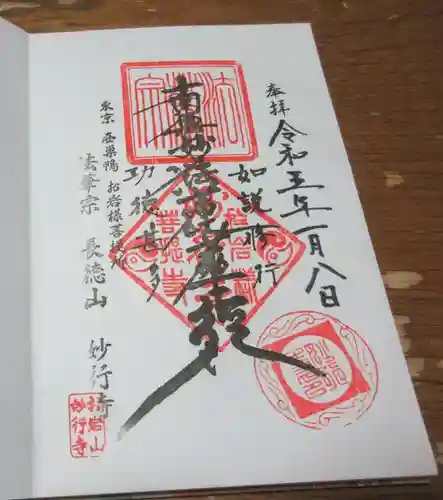 奉拝
令和五年一月八日
如説修行
南無妙法蓮華経
功徳甚多
東京 西巣鴨 お岩様菩提所
法華宗 長徳山 妙行寺
妙行寺